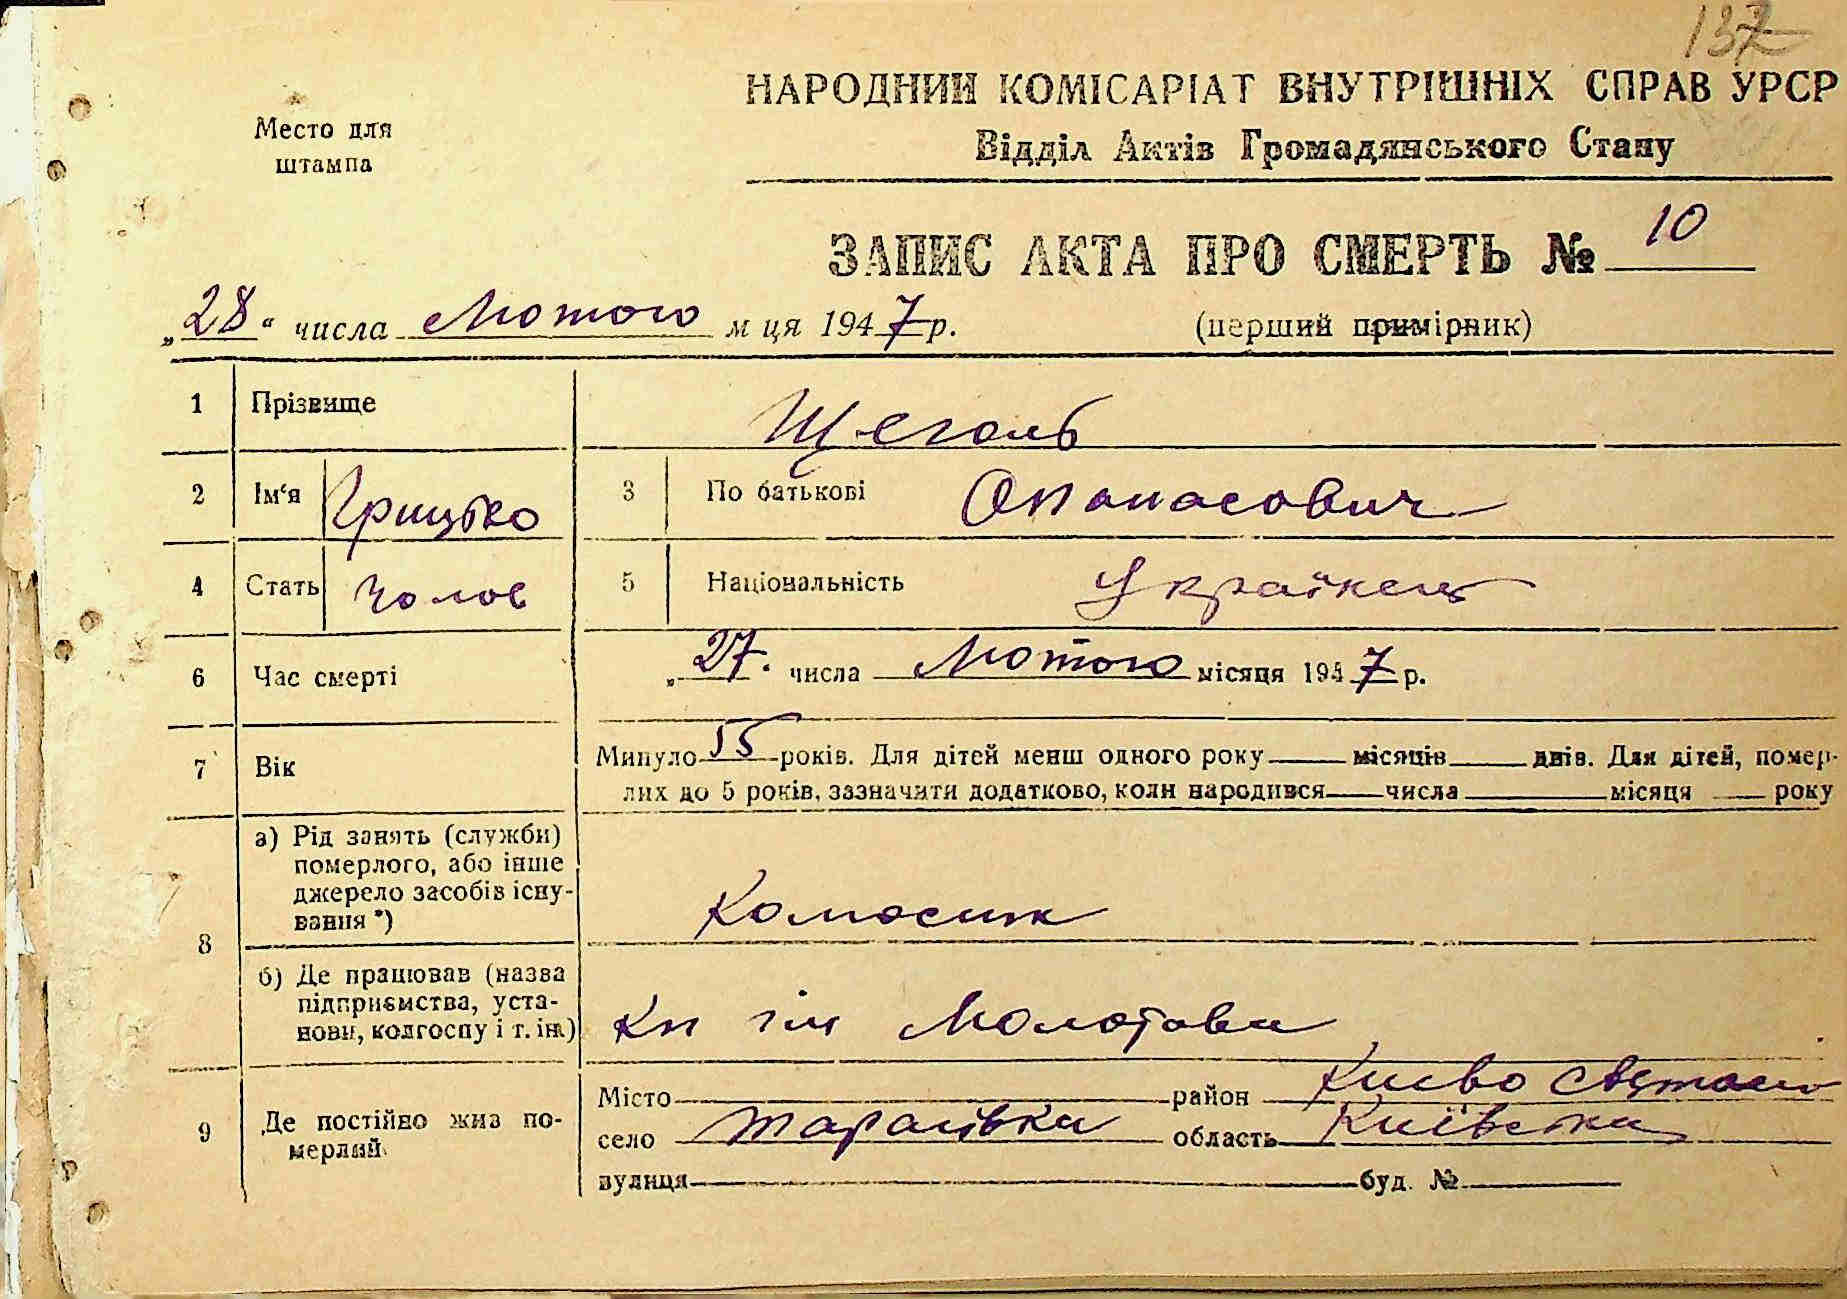 137
НАРОДНИЙ КОМІСАРІАТ ВНУТРІШНІХ СПРАВ УРСР
Место для
штампа
Відділ Актів Громадянського Стану
ЗАПИС АКТА ПРО СМЕРТЬ № 10
„28“ числа Лютого м ця 1947 р. (перший примірник)
1 Прізвище Щеголь
2 Ім‘я Грицько 3 По батькові Опанасович
4 Стать Чолов 5 Національність Українець
6 Час смерті „27. числа Лютого місяця 1947 р.
7 Вік Минуло 55 років. Для дітей менш одного року місяців днів. Для дітей, помер-
лих до 5 років, зазначити додатково, коли народився числа місяця року
8 а) Рід занять (служби)
померлого, або інше
джерело засобів існу-
вання *) Колгосник
б) Де працював (назва
підприємства, уста-
нови, колгоспу і т. ін.) Кп ім Молотова
9 Де постійно жив по-
мерлий
Місто район Києво Святош
село Тарасівка область Київська
вулиця буд. №